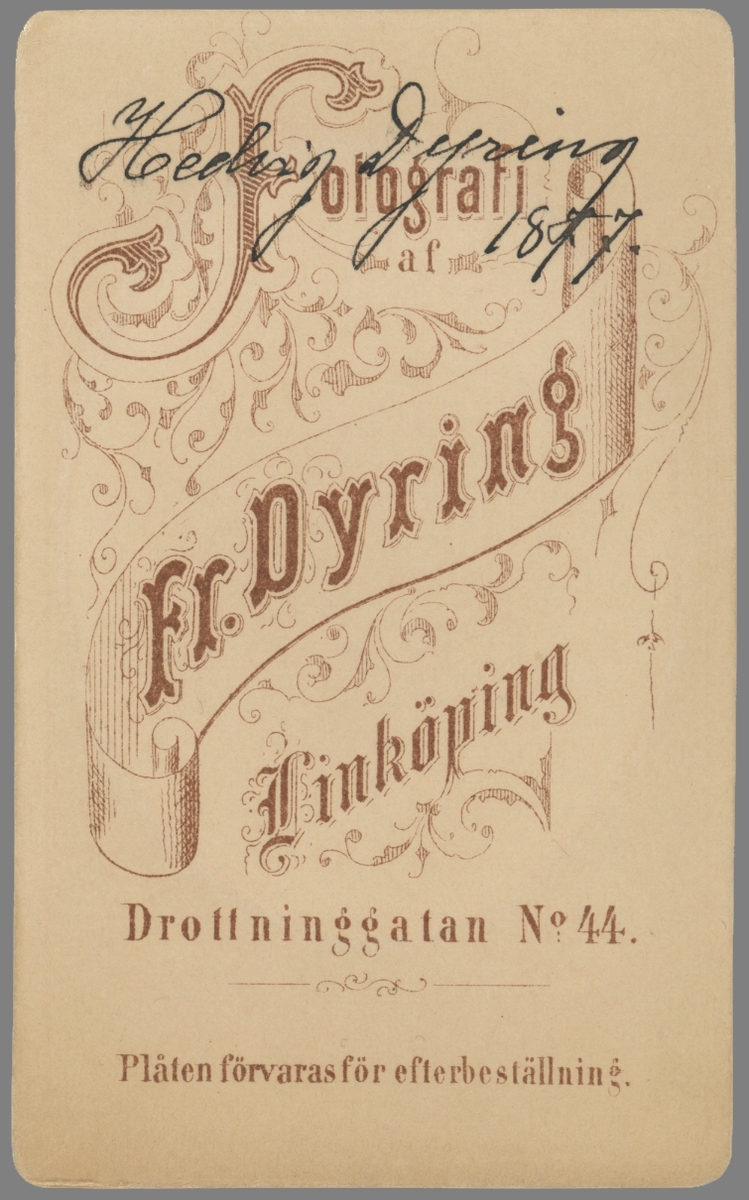 Hedvig Dyring
Fotografi
1877.
af
Fr. Dyring
Linköping
Drottninggatan No 44.
Plåten förvaras för efterbeställning.